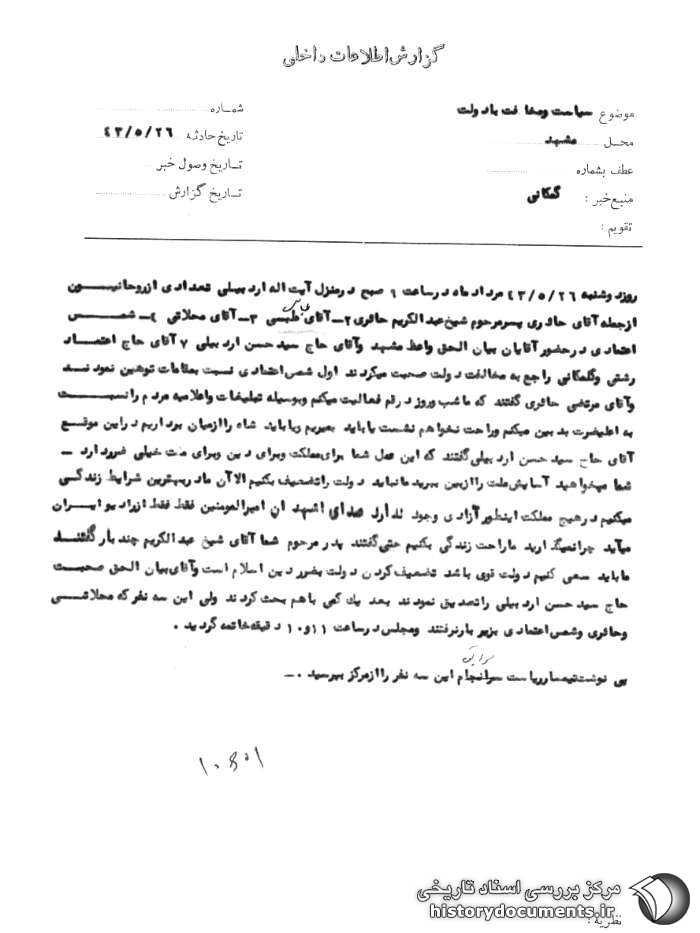 گزارش اطلاعات داخلی
موضوع سیاست ومخا لفت باد ولت
شماره
محل مشهد
تاریخ حادثه ٤٣/٥/٢٦
عطف بشماره
تاریخ وصول خبر
منبع خبر : گمکانی
تاریخ گزارش
تقویم :
روزد وشنبه ٤٣/٥/٢٦ مرداد ماه د رساعت ٩ صبح د رمنزل آیت اله ارد بیلی تعدادی ازروحانیون
ازجمله آقای حائری پسرمرحوم شیخ عبد الکریم حائری ٢ـ آقای طبسی ٣ـ آقای محلاتی ٤ـ شمس
اعتمادی د رحضور آقایان بیان الحق واعظ مشهد وآقای حاج سید حسن ارد بیلی ٧ آقای حاج اعتماد
رشتی وگلمکانی راجع به مخالفت د ولت صحبت میکردند اول شمس اعتمادی نسبت بمقامات توهین نمودند
وآقای مرتضی حائری گفتند که ما شب وروز د رقم فعالیت میکنم وبوسیله تبلیغات واعلامیه مردم را نسبت
به اعلیحضرت بد بین میکنم وراحت نخواهم نشست یا باید بمیریم ویا باید شاه را ازمیان برداریم د راین موقع
آقای حاج سید حسن ارد بیلی گفتند که این عمل شما برای مملکت وبرای د ین وبرای ملت خیلی ضررد ارد ـ
شما میخواهید آسایش ملت را ازبین ببرید ما نباید د ولت را تضعیف بکنیم الاآن ماد ربهترین شرایط زندگی
میکنیم د رهیچ مملکت اینطور آزادی وجود ند ارد صدای اشهد ان امیرالمومنین فقط فقط ازراد یو ایران
میآید چرانمیگذارید ما راحت زندگی بکنیم حتی گفتند پدر مرحوم شما آقای شیخ عبد الکریم چند بار گفتند
ما باید سعی کنیم د ولت قوی باشد تضعیف کردن د ولت بضرر د ین اسلام است وآقای بیان الحق صحبت
حاج سید حسن ارد بیلی را تصد یق نمودند بعد یك کمی با هم بحث کردند ولی این سه نفر که محلاتی
وحائری وشمس اعتمادی بزیر بارنرفتند ومجلس د رساعت ١١و١٠ د قیقه خاتمه گرد ید .
سوابق
پی نوشت تیمسارریاست سرانجام این سه نفر را ازمرکز بپرسید . ـ
نظریه :
مرکز بررسی اسناد تاریخی
historydocuments.ir